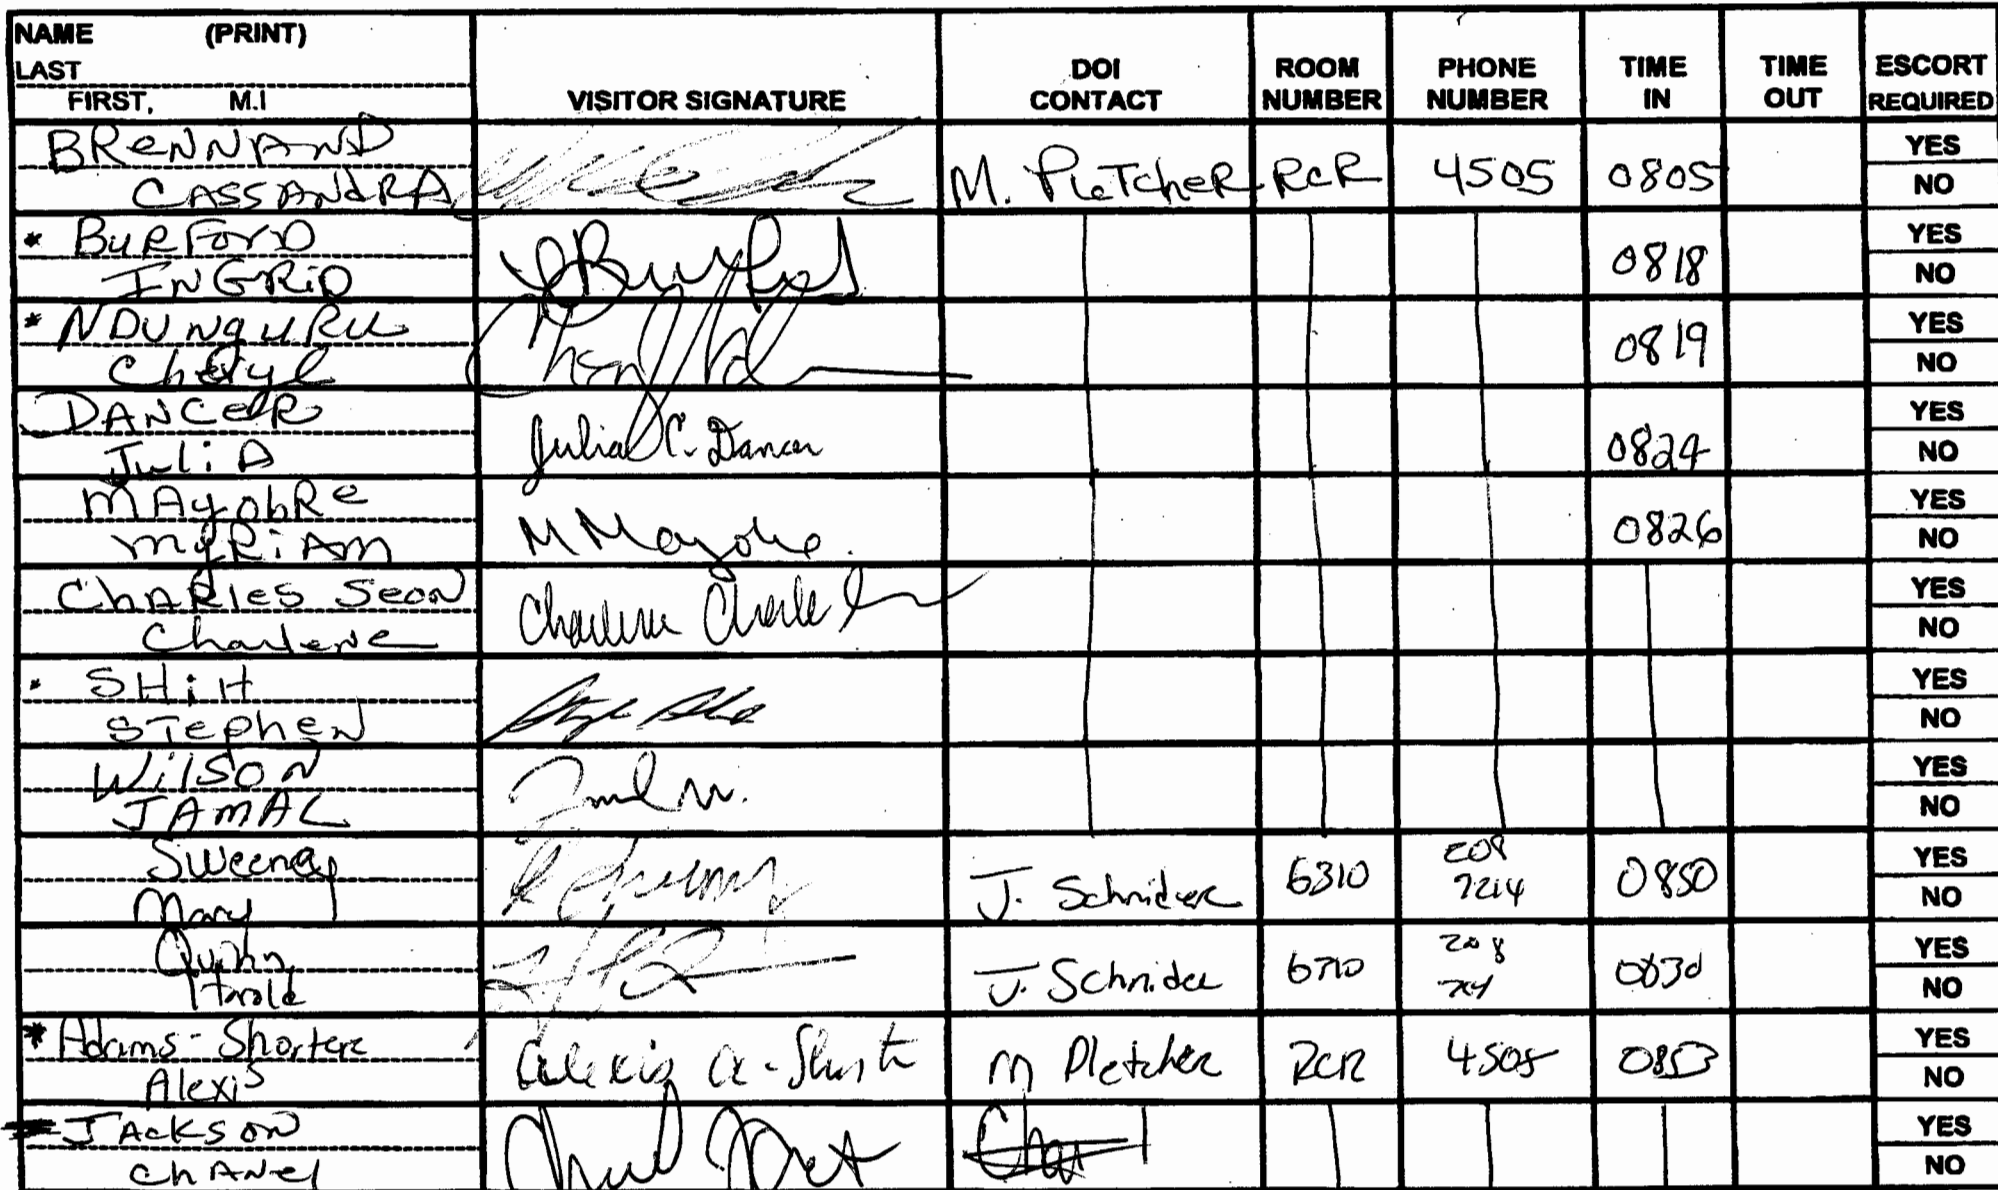 NAME (PRINT)
LAST
FIRST, M.I
VISITOR SIGNATURE
DOI CONTACT
ROOM NUMBER
PHONE NUMBER
TIME IN
TIME OUT
ESCORT REQUIRED
BRENNAND
CASSANDRA
M. PLETCHER RCR 4505 0805
YES
NO
* BURFORD
INGRID
0818
YES
NO
* NDUNGURU
Cheryl
0819
YES
NO
DANCER
Julia
Julia C. Dancer
0824
YES
NO
MAYOBRE
MYRIAM
M Mayobre.
0826
YES
NO
CHARLES SEON
Charlene
Charlene Charle
YES
NO
SHIH
STEPHEN
YES
NO
WILSON
JAMAL
YES
NO
Sweeney
Mary
J. Schnider 6310 208 7214 0850
YES
NO
Quinn
J. Schnider 208
YES
NO
* Adams-Shorter
Alexis
Alexis A-Short
M Pletcher RCR 4505 0853
YES
NO
* JACKSON
CHANEL
YES
NO